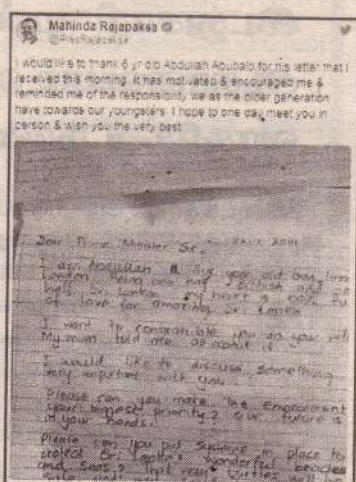 Mahinda Rajapaksa
@PresRajapaksa
I would like to thank 6 yr old Abdullah Abubalo for his letter that I
received this morning. It has motivated & encouraged me &
reminded me of the responsibility we as the older generation
have towards our youngsters. I hope to one day meet you in
person & wish you the very best
Dear Prime Minister Sir,
I am Abdullah a year old boy from
London being one half British and one
half Sri Lankan
of love for amazing Sri Lanka
I want to congratulate you on your
My mum told me all about it
I would like to discuss something
very important with you
Please can you make the Environment
your biggest priority? Our future is
in your hands.
Please can you put in place to
protect Sri Lanka's wonderful beaches
and seas? That very turtles will